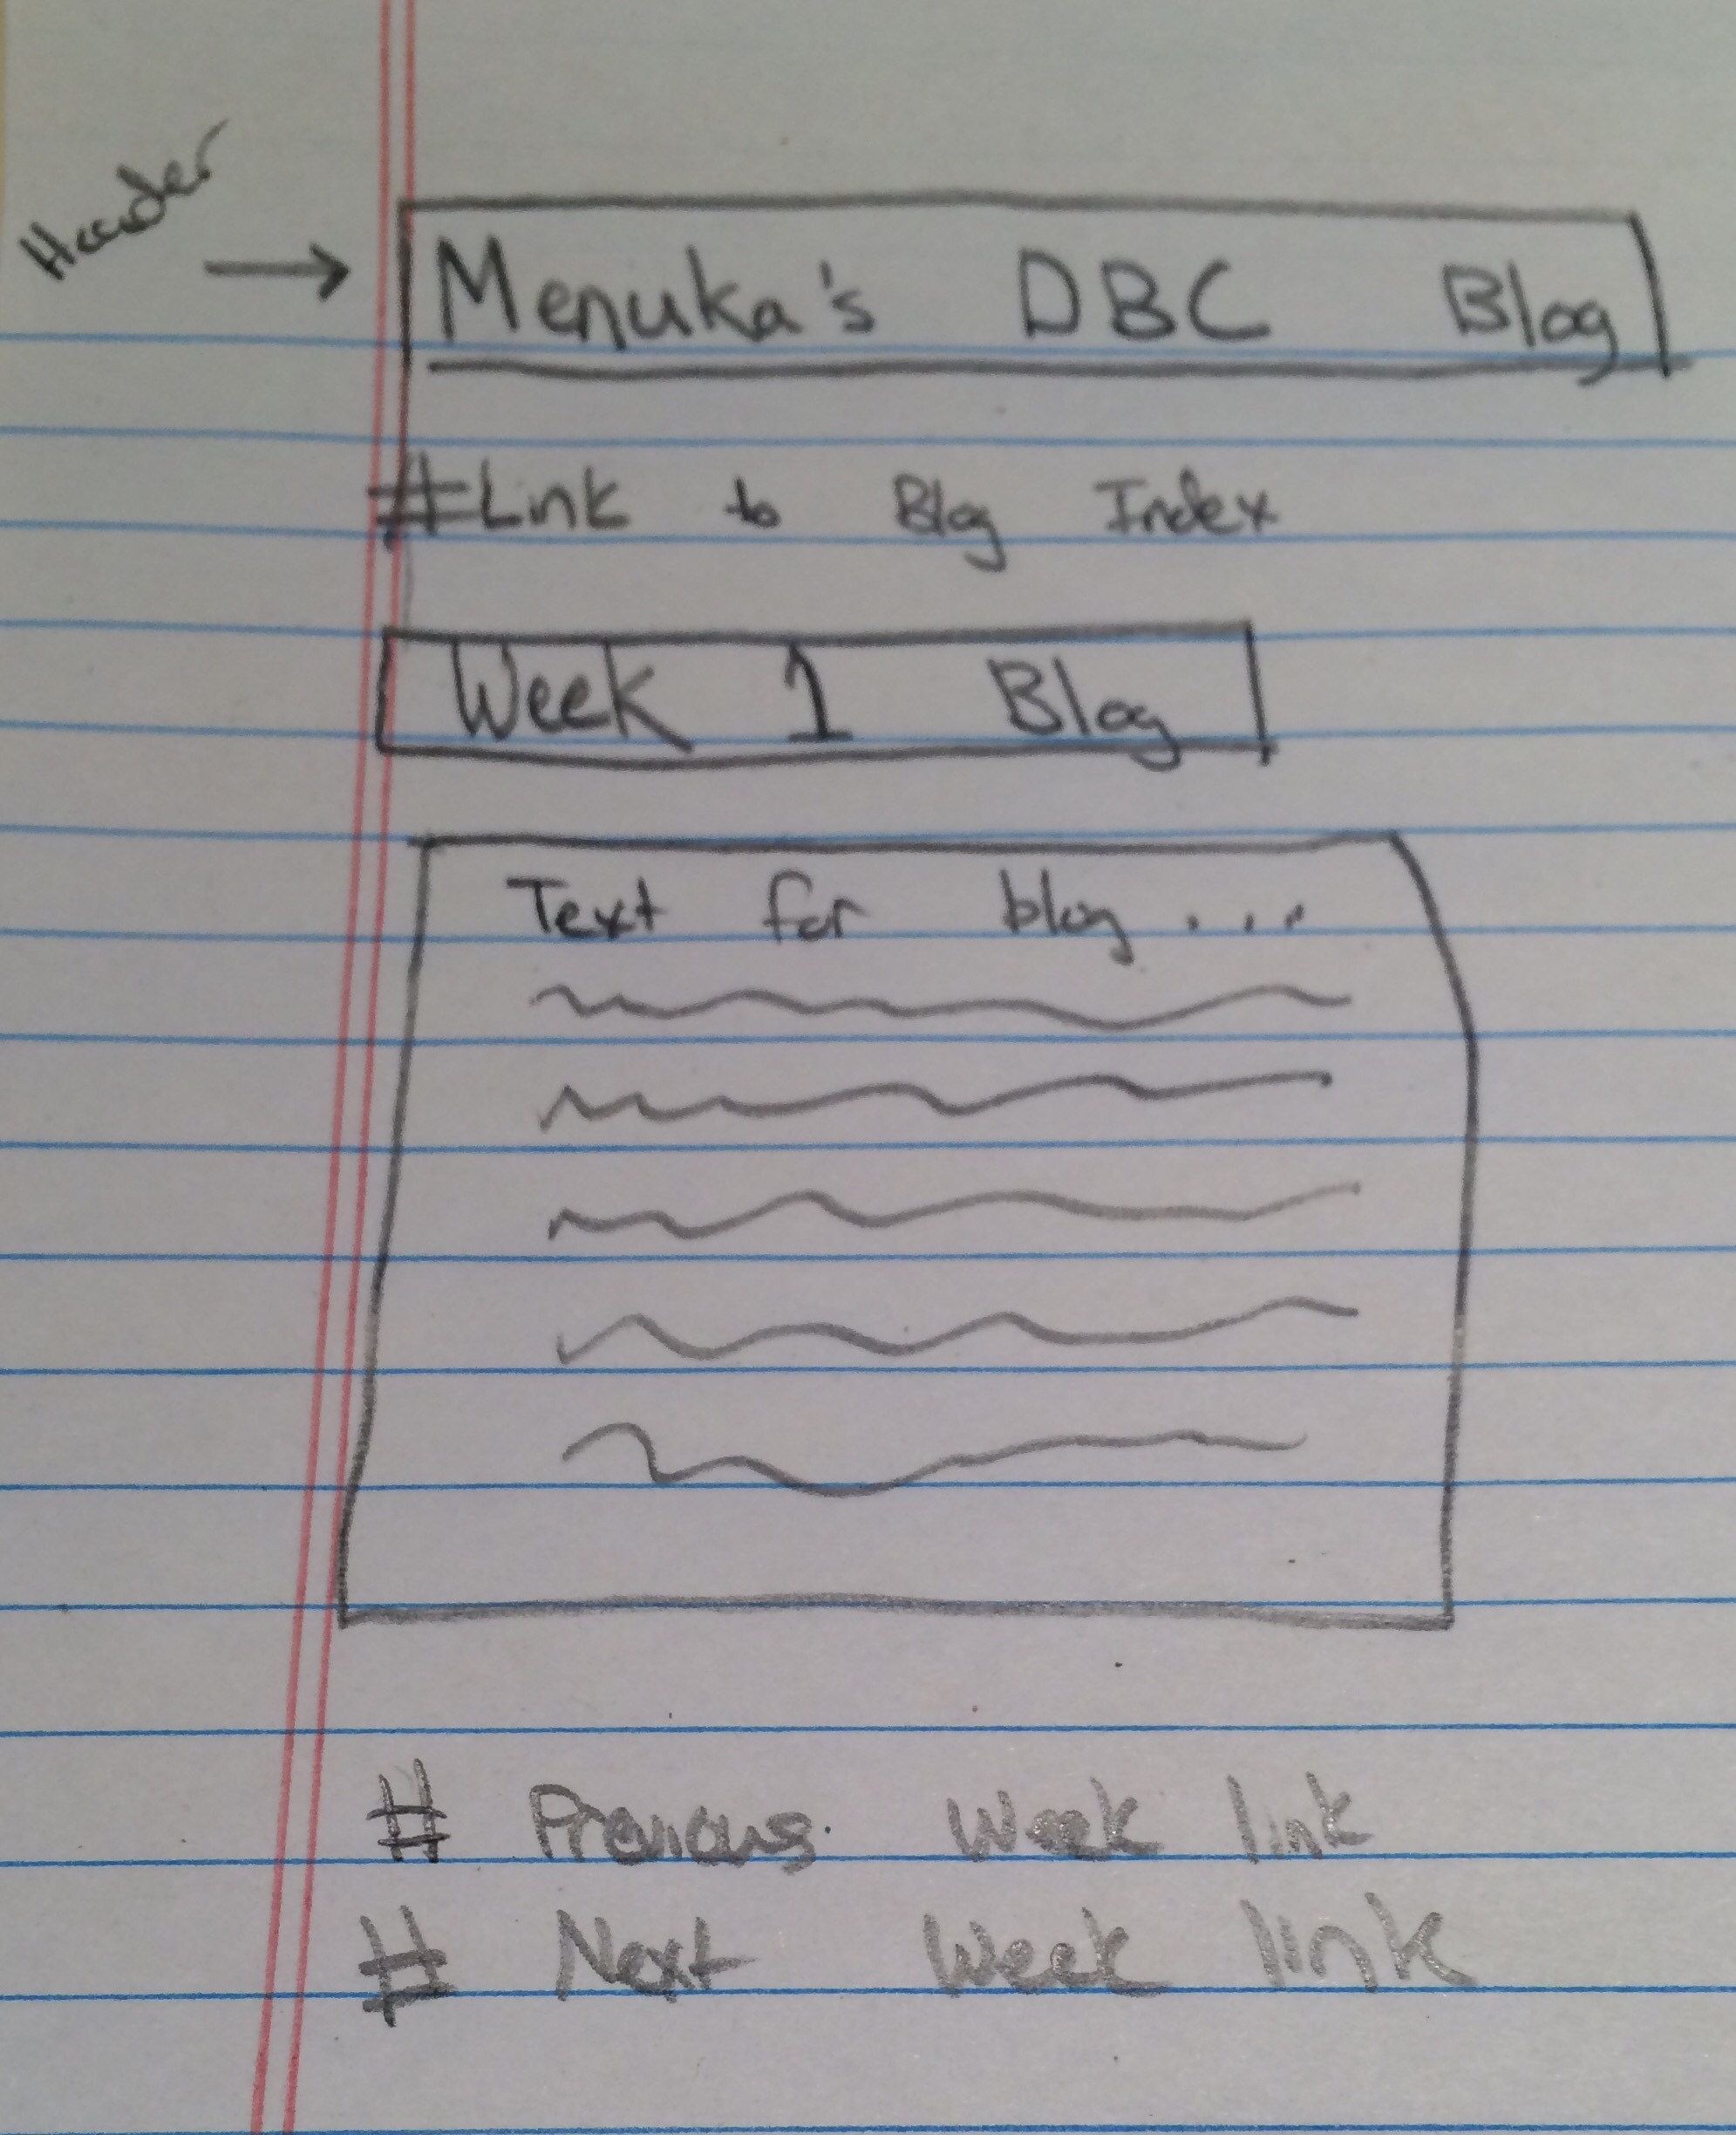 Header
Menuka's DBC Blog
#Link to Blog Index
Week 1 Blog
Text for blog....
# Previous Week link
# Next Week link